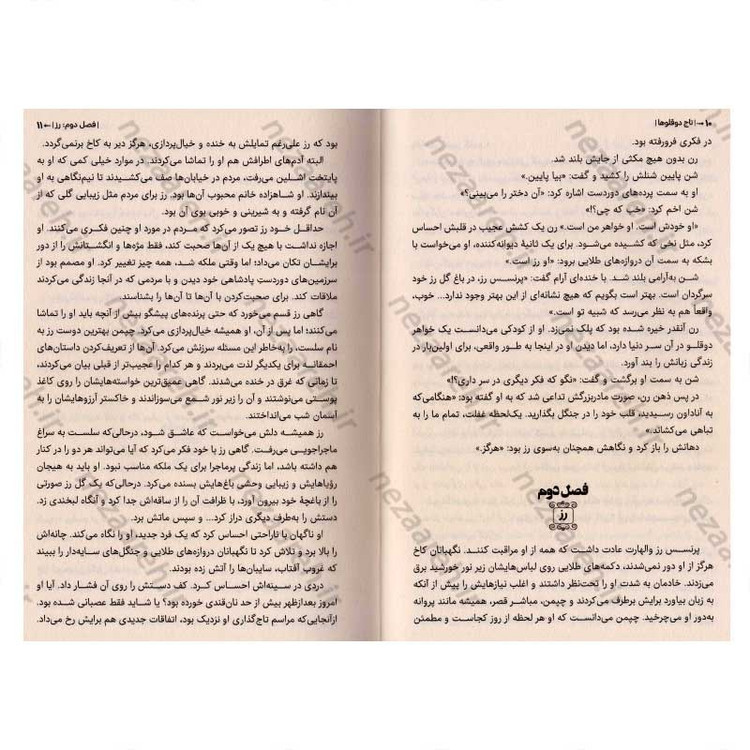 ۱۰ → | تاج دوقلوها |
در فکری فرورفته بود.
رن بدون هیچ مکثی از جایش بلند شد.
شن پایین شنلش را کشید و گفت: «بیا پایین.»
او به سمت پرده‌های دوردست اشاره کرد: «آن دختر را می‌بینی؟»
شن اخم کرد: «خب که چی؟!»
«او خودش است. او خواهر من است.» رن یک کشش عجیب در قلبش احساس
کرد، مثل نخی که کشیده می‌شود. برای یک ثانیهٔ دیوانه‌کننده، او می‌خواست با
بشکه به سمت آن دروازه‌های طلایی برود: «او رز است.»
شن به‌آرامی بلند شد. با خنده‌ای آرام گفت: «پرنسس رز، در باغ گل رز خود
سرگردان است. بهتر است بگویم که هیچ نشانه‌ای از این بهتر وجود ندارد... خوب،
واقعاً هم به نظر می‌رسد که شبیه تو است.»
رن آنقدر خیره شده بود که پلک نمی‌زد. او از کودکی می‌دانست یک خواهر
دوقلو در آن سر دنیا دارد، اما دیدن او در اینجا به طور واقعی، برای اولین‌بار در
زندگی زبانش را بند آورد.
شن به سمت او برگشت و گفت: «نگو که فکر دیگری در سر داری؟!»
در پس ذهن رن، صورت مادربزرگش تداعی شد که به او گفته بود: «هنگامی‌که
به آناداون رسیدید، قلب خود را در جنگل بگذارید. یک‌لحظه غفلت، تمام ما را به
تباهی می‌کشاند.»
دهانش را باز کرد و نگاهش همچنان به‌سوی رز بود: «هرگز.»
فصل دوم
رز
پرنسس رز والهارت عادت داشت که همه از او مراقبت کنند. نگهبانان کاخ
هرگز از او دور نمی‌شدند، دکمه‌های طلایی روی لباس‌هایشان زیر نور خورشید برق
می‌زدند. خادمان به شدت او را تحت‌نظر داشتند و اغلب نیازهایش را پیش از آنکه
به زبان بیاورد برایش برطرف می‌کردند و چپمن، مباشر قصر، همیشه مانند پروانه
به‌دور او می‌چرخید. چپمن می‌دانست که او هر لحظه از روز کجاست و مطمئن
| فصل دوم: رز | ← ۱۱
بود که رز علی‌رغم تمایلش به خنده و خیال‌پردازی، هرگز دیر به کاخ برنمی‌گردد.
البته آدم‌های اطرافش هم او را تماشا می‌کردند. در موارد خیلی کمی که او به
پایتخت اشلین می‌رفت، مردم در خیابان‌ها صف می‌کشیدند تا نیم‌نگاهی به او
بیندازند. او شاهزاده خانم محبوب آن‌ها بود. رز برای مردم مثل زیبایی گلی که از
آن نام گرفته و به شیرینی و خوبی بوی آن بود.
حداقل، خود رز تصور می‌کرد که مردم در مورد او چنین فکری می‌کنند. او
اجازه نداشت با هیچ یک از آن‌ها صحبت کند، فقط مژه‌ها و انگشتانش را از دور
برایشان تکان می‌داد؛ اما وقتی ملکه شد، همه چیز تغییر کرد. او مصمم بود از
سرزمین‌های دوردستِ پادشاهی خود دیدن و با مردمی که در آنجا زندگی می‌کردند
ملاقات کند. برای صحبت‌کردن با آن‌ها تا آن‌ها را بشناسند.
گاهی رز قسم می‌خورد که حتی پرنده‌های پیشگو بیش از آنچه باید او را تماشا
می‌کنند؛ اما پس از آن، او همیشه خیال‌پردازی می‌کرد. چپمن بهترین دوست رز به
نام سلست، را به‌خاطر این مسئله سرزنش می‌کرد. آن‌ها از تعریف‌کردن داستان‌های
احمقانه برای یکدیگر لذت می‌بردند و هر کدام را عجیب‌تر از قبلی بیان می‌کردند،
تا زمانی که غرق در خنده می‌شدند. گاهی عمیق‌ترین خواسته‌هایشان را روی کاغذ
پوستی می‌نوشتند و آن را زیر نور شمع می‌سوزاندند و خاکستر آرزوهایشان را به
آسمان شب می‌انداختند.
رز همیشه دلش می‌خواست که عاشق شود، درحالی‌که سلست به سراغ
ماجراجویی می‌رفت. گاهی رز با خود فکر می‌کرد که آیا می‌تواند هر دو را در کنار
هم داشته باشد، اما زندگی پرماجرا برای یک ملکه مناسب نبود. او باید به هیجان
رؤیاهایش و زیبایی وحشی باغ‌هایش بسنده می‌کرد. درحالی‌که یک گل رز صورتی
را از باغچهٔ خود بیرون آورد، با ظرافت آن را از ساقه‌اش جدا کرد و آنگاه لبخندی زد.
دستش را به‌طرف دیگری دراز کرد... و سپس ماتش برد.
او ناگهان با ناراحتی احساس کرد که یک فرد جدید، او را نگاه می‌کند. چانه‌اش
را بالا برد و تلاش کرد تا نگهبانان دروازه‌های طلایی و جنگل‌های سایه‌دار را ببیند
که غروب آفتاب، سایبان‌ها را آتش زده بودند.
دردی در سینه‌اش احساس کرد. کف دستش را روی آن فشار داد. آیا او
امروز بعدازظهر بیش از حد نان‌قندی خورده بود؟ یا شاید فقط عصبانی شده بود.
ازآنجایی‌که مراسم تاج‌گذاری او نزدیک بود، اتفاقات جدیدی هم برایش رخ می‌داد.
nezaareh.ir